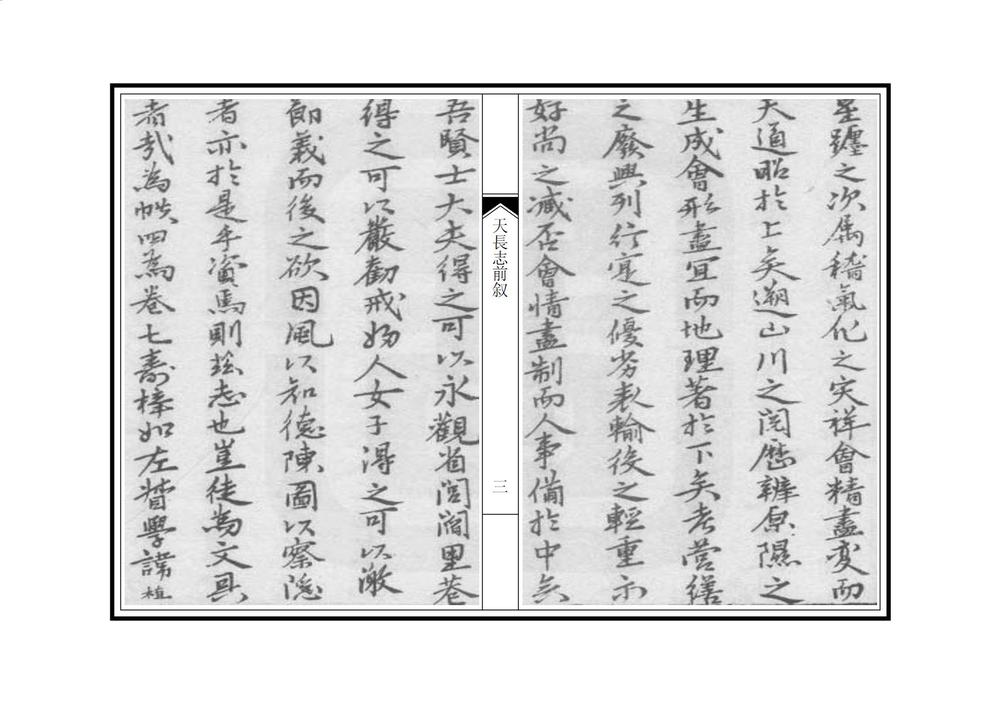 星躔之次屬稽氣化之灾祥會精盡変而
天道昭於上矣遡山川之闊歷辨原隰之
生成會形盡宜而地理著於下矣考營繕
之廢興列行寔之優劣表輸役之輕重示
好尚之臧否會情盡制而人事備於中矣
天長志前叙
三
吾賢士大夫得之可以永觀省閭閻里巷
得之可以嚴勸戒婦人女子得之可以激
節義而後之欲因風以知德陳圖以察隱
者亦於是乎資焉則茲志也豈徒為文具
者哉為帙四為卷七壽梓如左贊學諱植